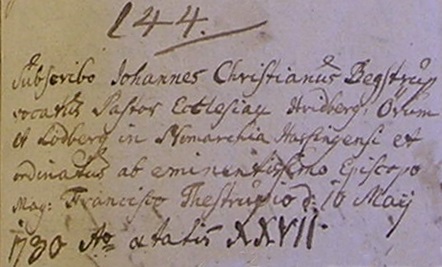 144.
Subscribo Johannes Christianus Begstrup
vocatus Pastor Ecclesiæ Hvidberg, Ørum
et Lodberg in Nomarchia Hassingensi et
ordinatus ab eminentissimo Episcopo
Mag: Francisco Thestrupio d: 10 Maij
1730 Ao ætatis XXVII.